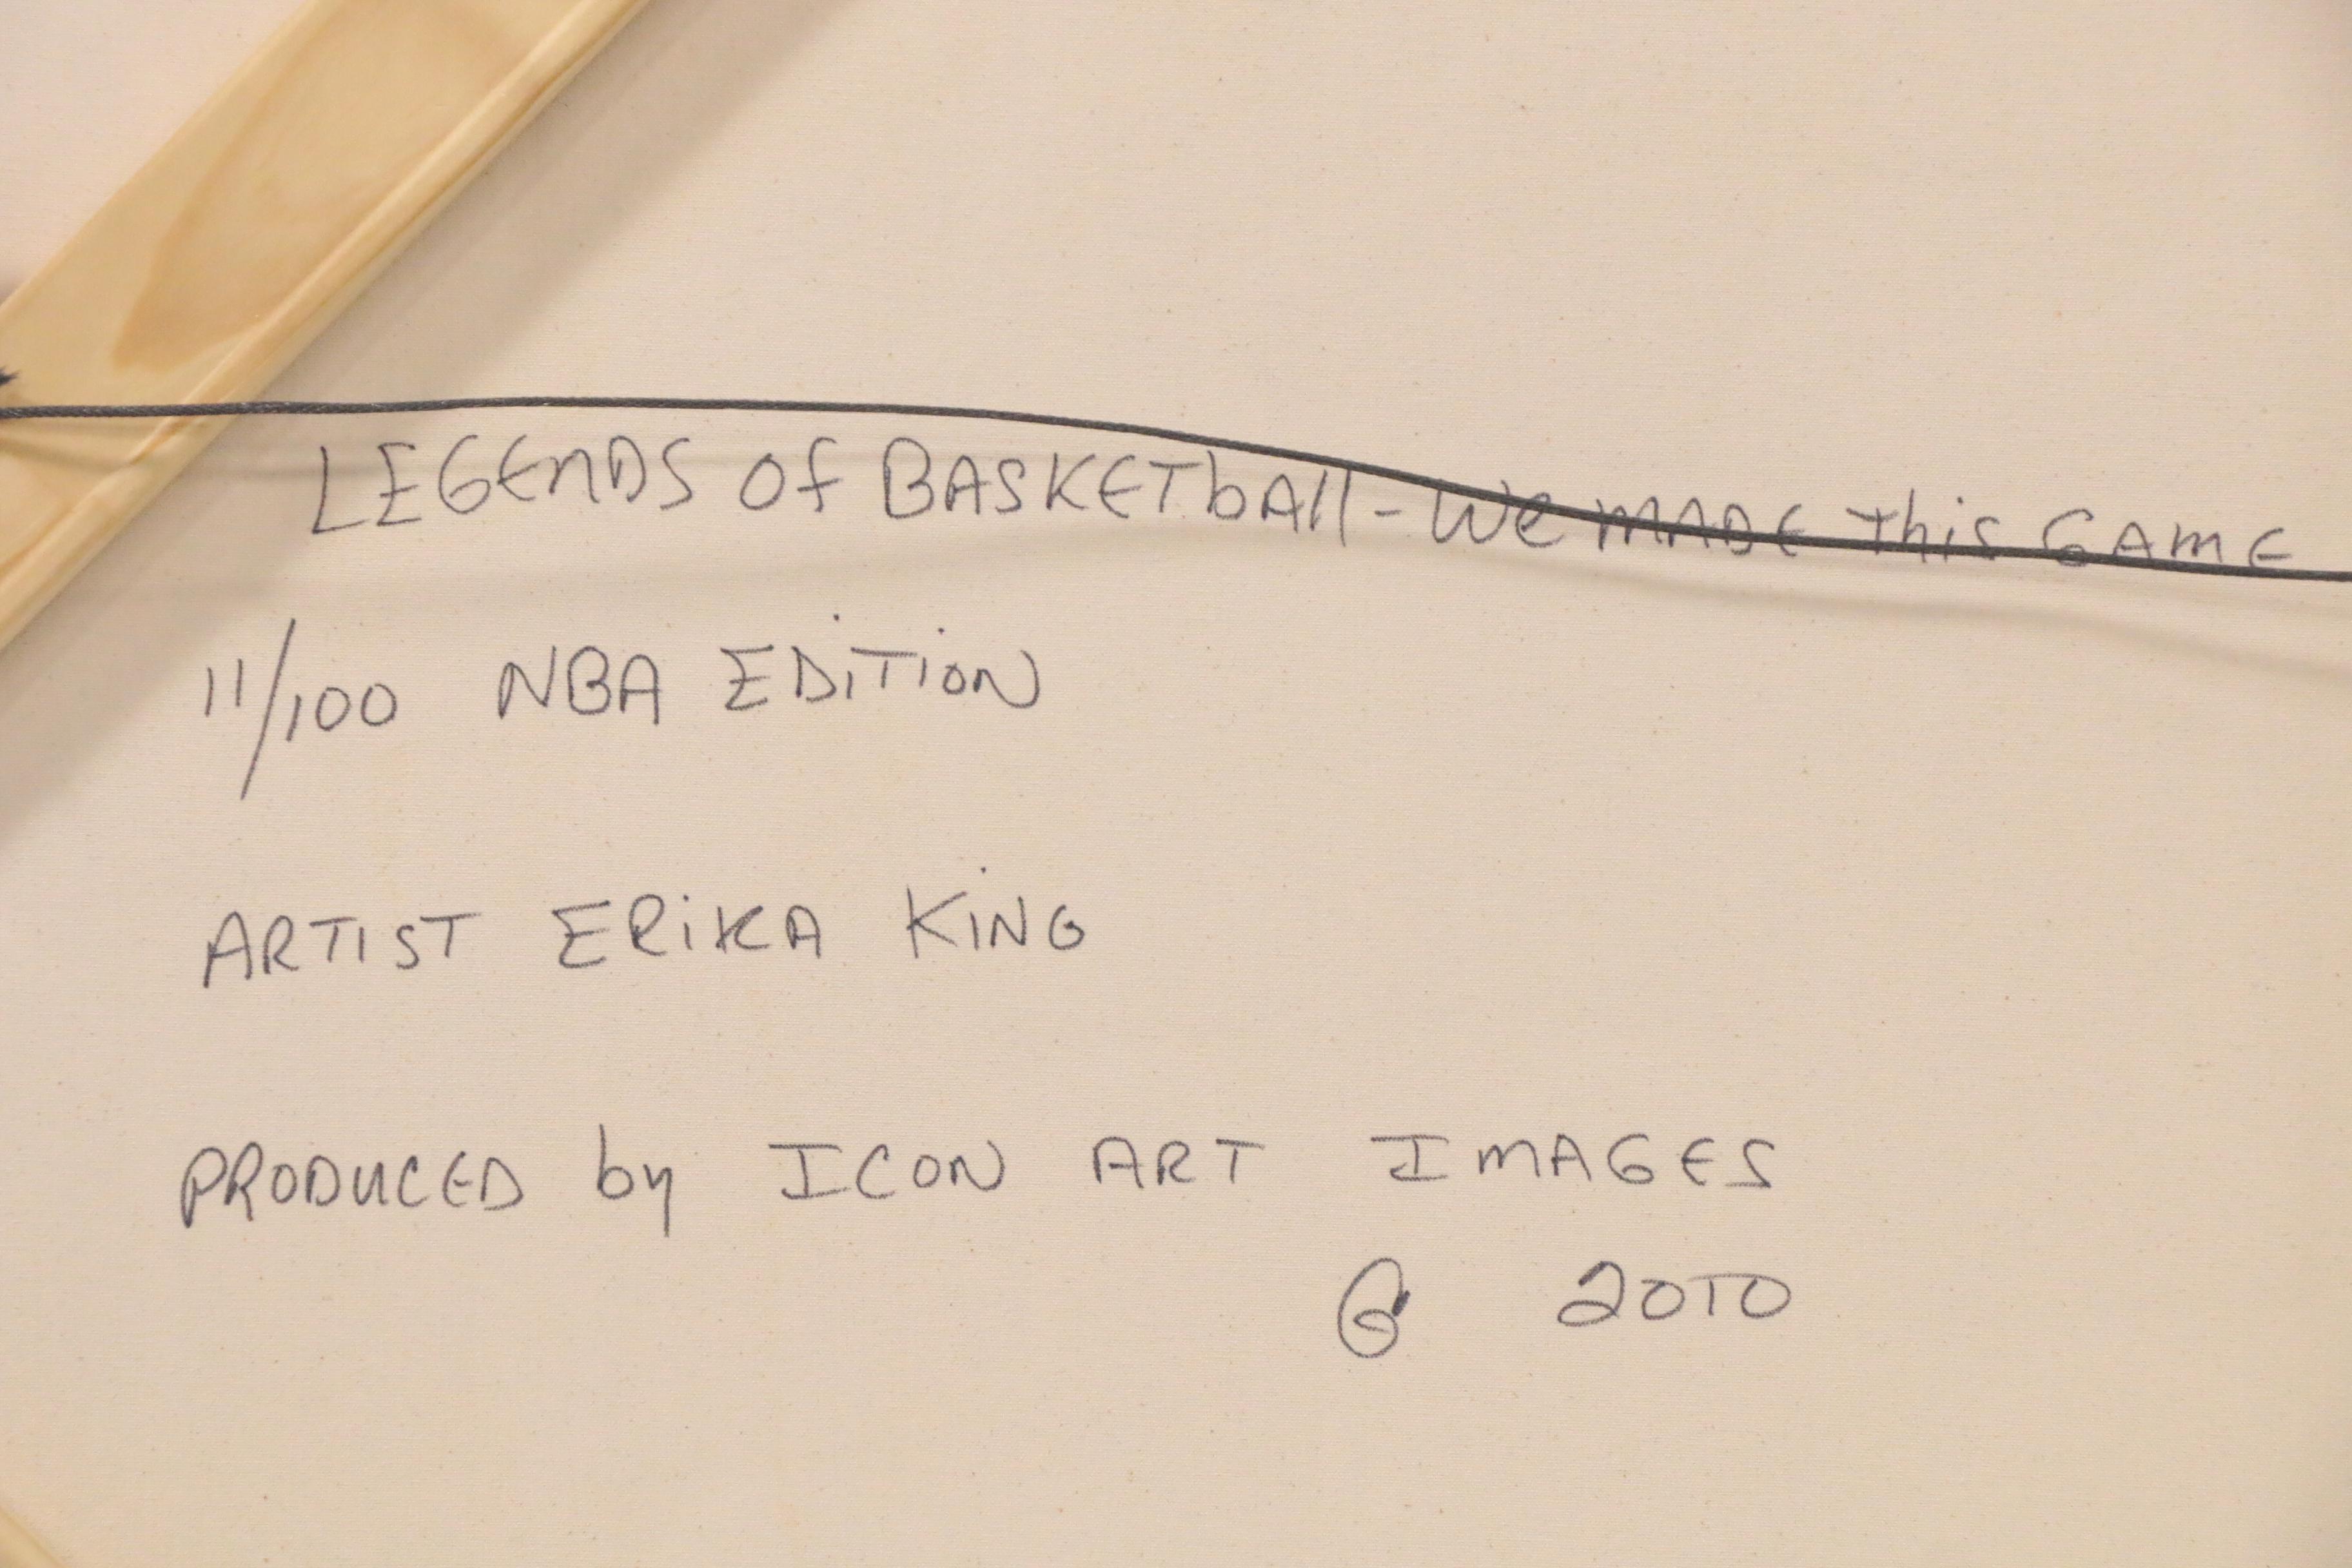 LEGENDS Of BASKETbAll - We MADE This GAME
11/100 NBA EDiTiON
ARTIST ERiKA KiNG
PRODUCED by ICON ART IMAGES
© 2010